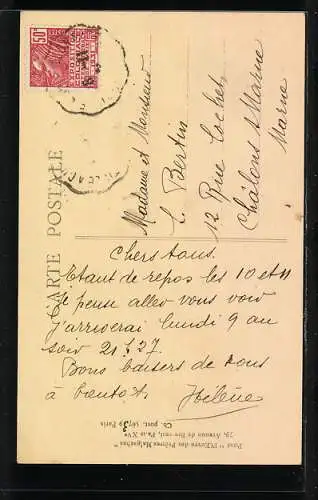 50c
CARTE POSTALE
Madame et Monsieur
L. Bertin
12 Rue Cochet
Châlons s Marne
Marne
Chers tous.
Etant de repos les 10 et 11
Je pense aller vous voir
j'arriverai lundi 9 au
soir 21 h 27.
Bons baisers de tous
à bientôt. Hélène
Pour "l'Œuvre des Prêtres Malgaches"
79, Avenue de Breteuil, Paris XVe
Ch. post. 
Paris